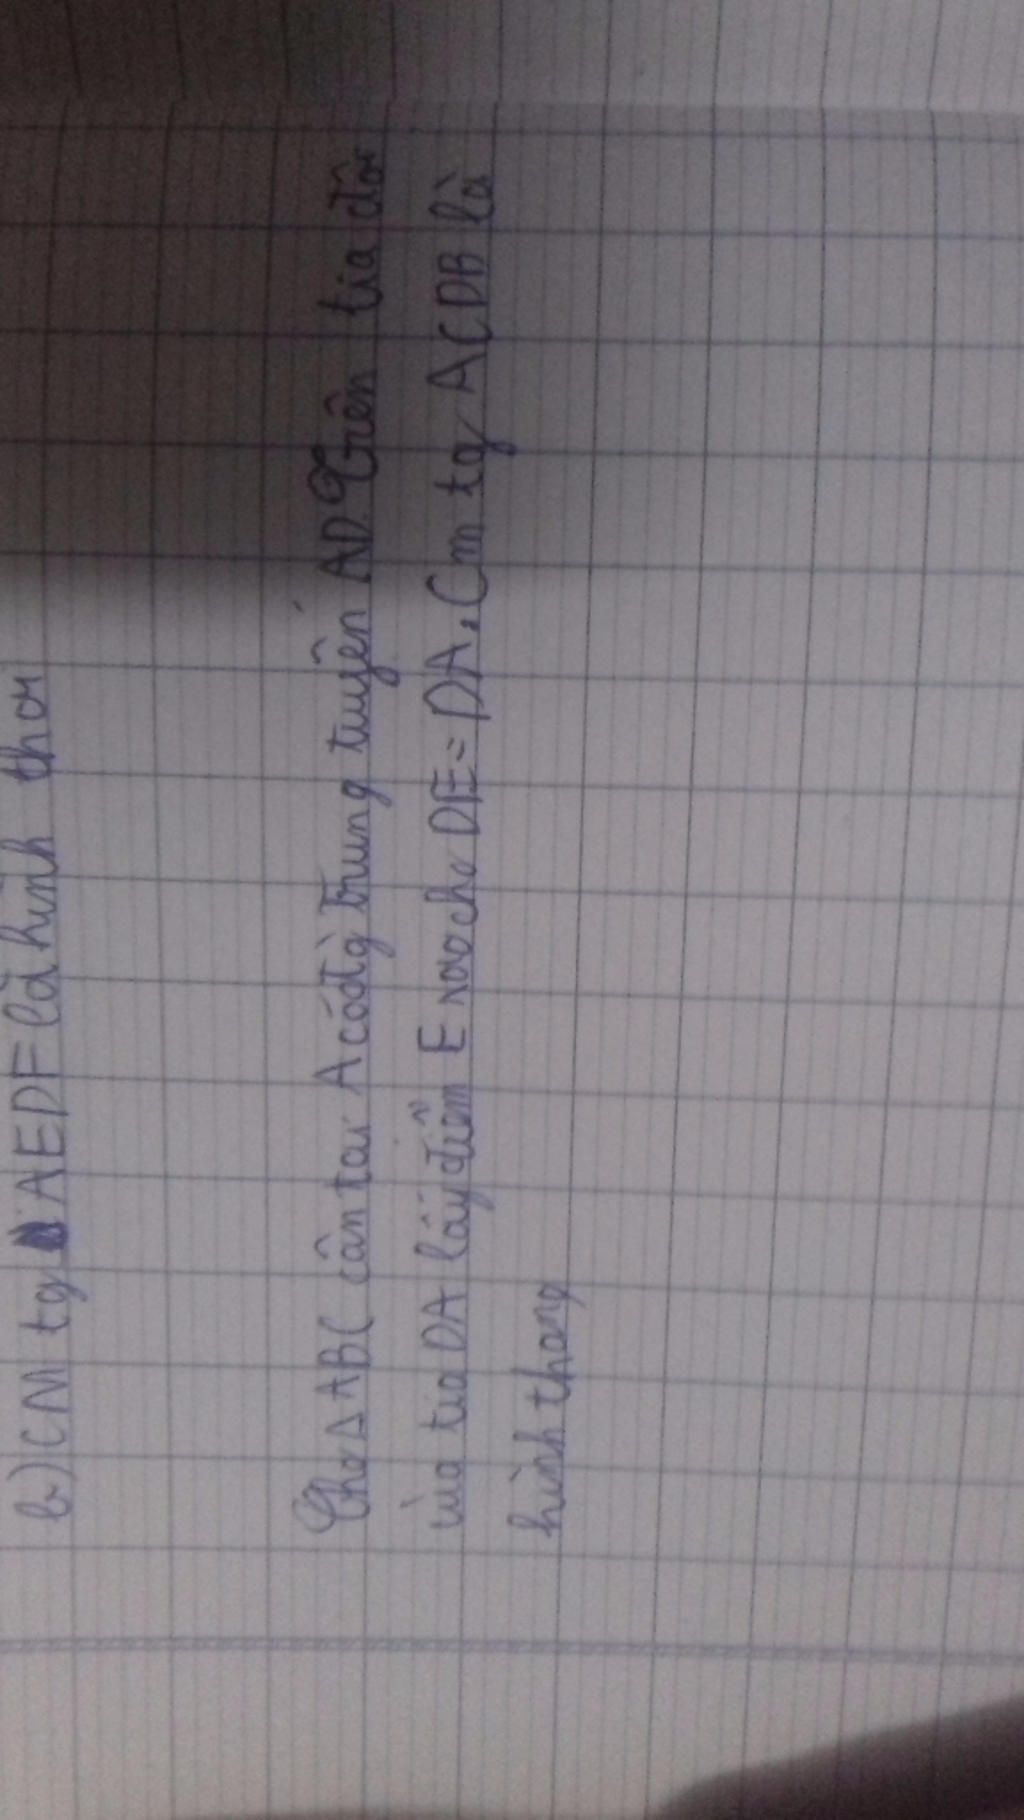 b) CM tg AEDF là hình thoi
Cho Δ ABC cân tại A có đg trung tuyến AD Trên tia đối
của tia DA lấy điểm E sao cho DE = DA, Cm tg ACDB là
hình thang